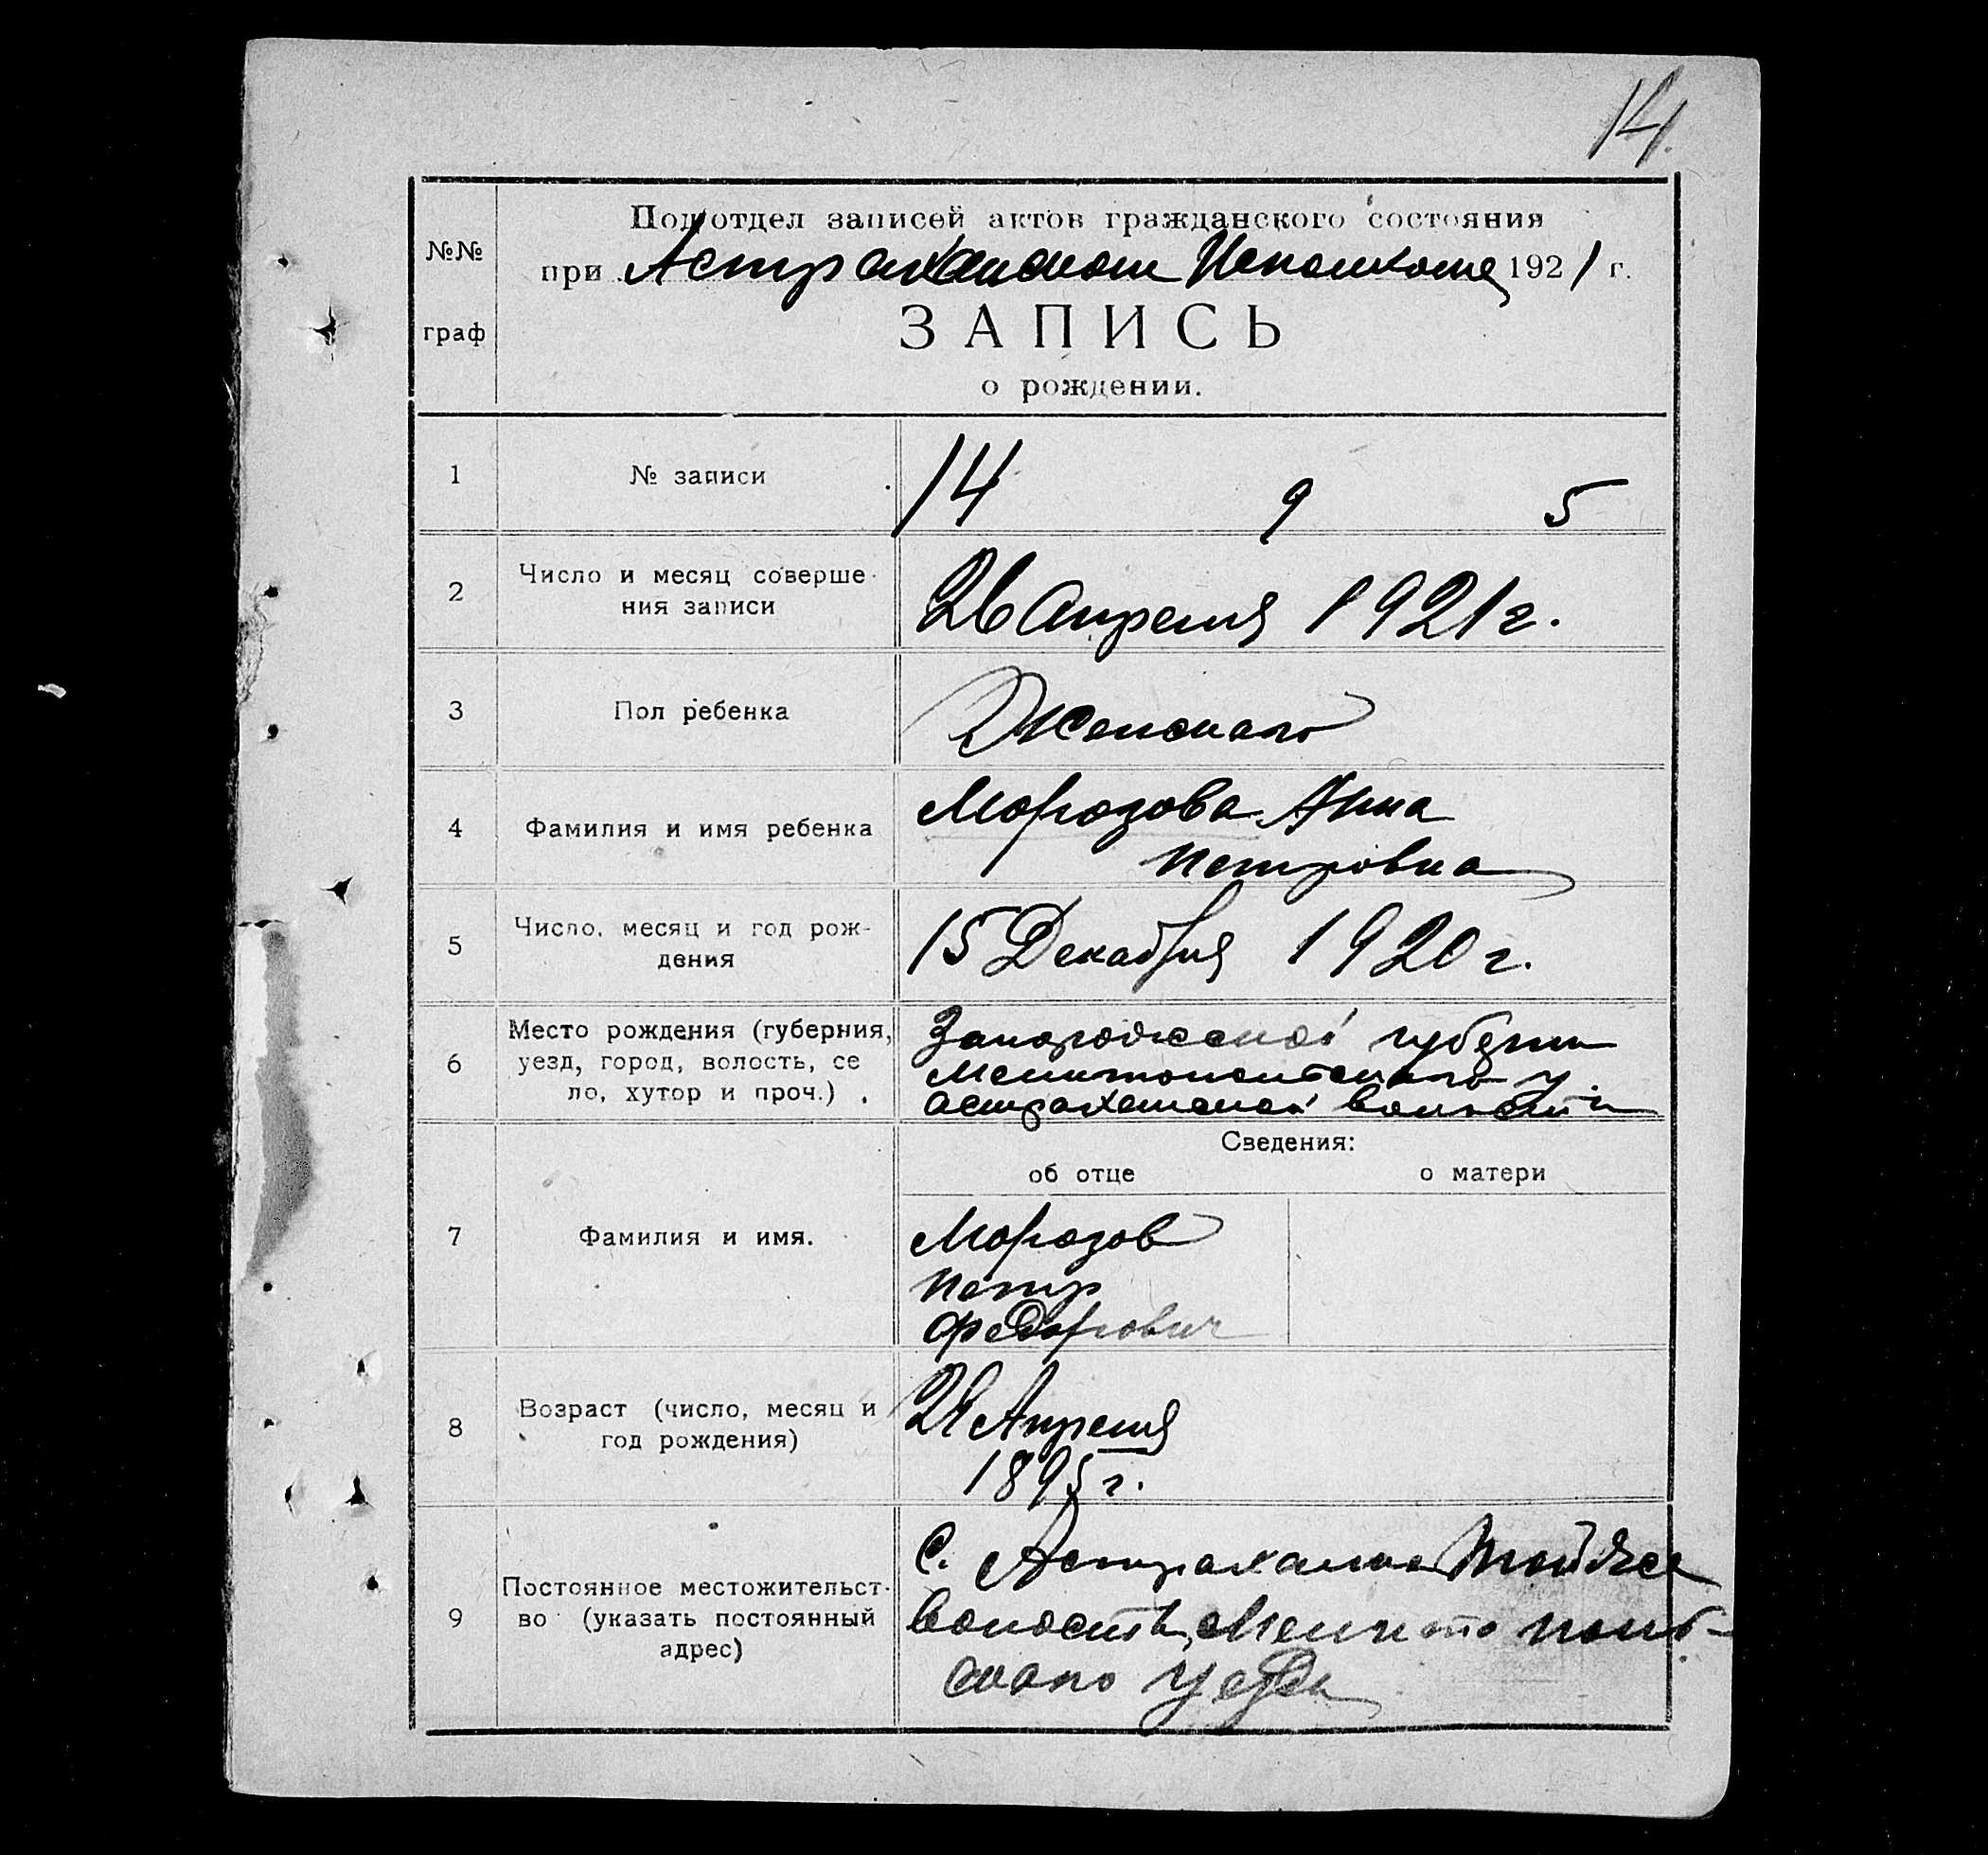 14.
№№ граф
Подотдел записей актов гражданского состояния
при Астраханском Исполкоме 1921 г.
ЗАПИСЬ
о рождении.
1 № записи 14 9 5
2 Число и месяц соверше-
ния записи
26 Апреля 1921 г.
3 Пол ребенка Женскаго
4 Фамилия и имя ребенка Морозова Анна
Петровна
5 Число, месяц и год рож-
дения
15 Декабря 1920 г.
6 Место рождения (губерния,
уезд, город, волость, се
ло, хутор и проч.)
Запорожской губернии
Мелитопольскаго у.
Астраханской волости
Сведения:
об отце о матери
7 Фамилия и имя.
Морозов
Петр
Федорович
8 Возраст (число, месяц и
год рождения)
Апреля
1895 г.
9 Постоянное местожительст-
во (указать постоянный
адрес)
С. Астраханка Той же
волости, Мелитополь-
скаго уезда